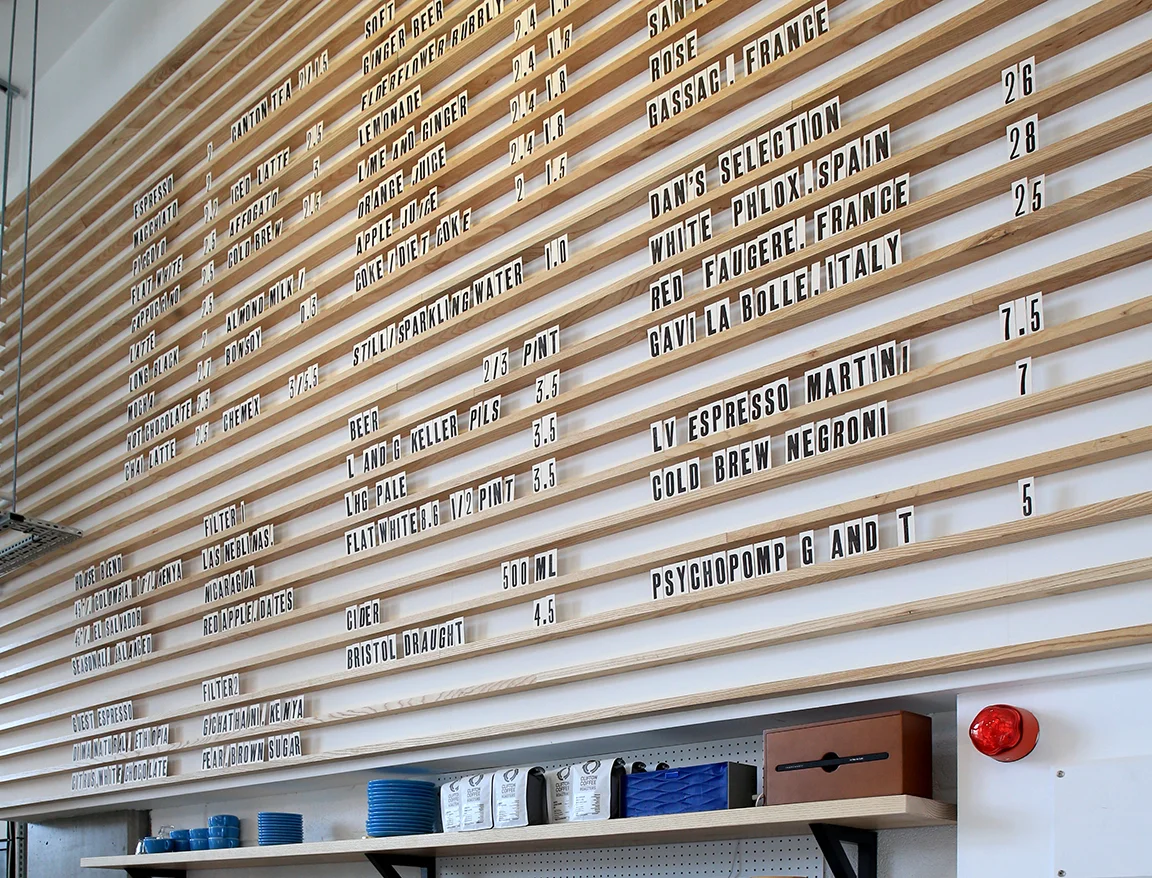 ESPRESSO
MACCHIATO
PICCOLO
FLAT WHITE 2.5
CAPPUCCINO 2.5
LATTE 2.5
LONG BLACK 2
MOCHA 2.7
HOT CHOCOLATE 2.5
CHAI LATTE 2.5
CANTON TEA
ICED LATTE 2.5
AFFOGATO 3
COLD BREW 2.5
ALMOND MILK /
BONSOY 0.3
CHEMEX 3/5.5
HOUSE BLEND
COLOMBIA, KENYA
EL SALVADOR
SEASONAL, BALANCED
GUEST ESPRESSO
DIMA NATURAL, ETHIOPIA
CITRUS, WHITE CHOCOLATE
FILTER 1
LAS NEBLINAS,
NICARAGUA
RED APPLE, DATES
FILTER2
GICHATHAINI, KENYA
PEAR, BROWN SUGAR
SOFT
GINGER BEER
ELDERFLOWER BUBBLY 2.4 1.8
LEMONADE 2.4 1.8
LIME AND GINGER 2.4 1.8
ORANGE JUICE 2.4 1.8
APPLE JUICE 2.4 1.8
COKE / DIET COKE 2 1.5
STILL/SPARKLING WATER 1.0
BEER 2/3 PINT
L AND G KELLER PILS 3.5
LHG PALE 3.5
FLAT WHITE 8.6 1/2 PINT 3.5
CIDER 500 ML
BRISTOL DRAUGHT 4.5
ROSE
GASSAC. FRANCE 26
DAN'S SELECTION
WHITE PHLOX. SPAIN 26
RED FAUGERE. FRANCE 28
GAVI LA BOLLE. ITALY 25
LV ESPRESSO MARTINI 7.5
COLD BREW NEGRONI 7
PSYCHOPOMP G AND T 5
CLIFTON
COFFEE